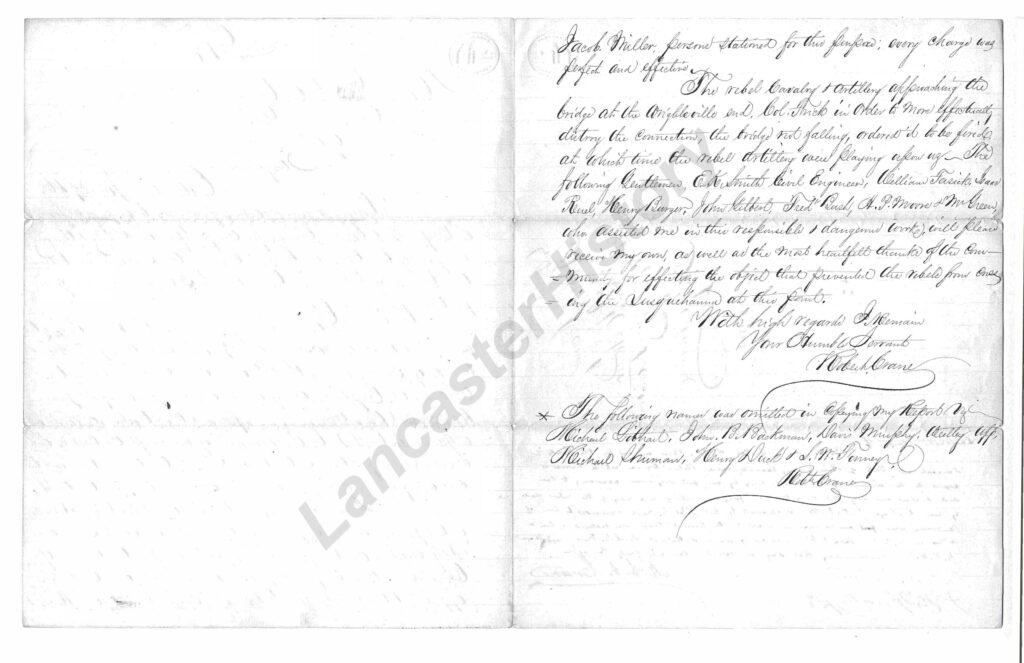 Jacob Miller, persons stationed for this purpose; every charge was
perfect and effective.
The rebel Cavalry & Artillery approaching the
bridge at the Wrightsville end, Col. Frick in order to more effectually
distroy the connection, the bridge not falling, ordered it to be fired
at which time the rebel Artillery were playing upon us— The
following Gentlemen, E.K. Smith Civil Engineer, William Fasick, Isaac
Ruel, Henry Burger, John Gilbert, Fred Bush, H.P. Moore & Mr Green,
who assisted me in this responsible & dangerous work, will please
receive my own, as well as the most heartfelt thanks of the com-
=munity, for effecting the object that prevented the rebels from cross
=ing the Susquehanna at this point.
With high regards I Remain
Your Humble Servant
Robert Crane
* The following names was omitted in Copying my Report Viz
Michael Libhart, John B. Bachman, Davis Murphy,
Michael Shuman, Henry Duck & S. W. Finney
Robt Crane
LancasterHistory